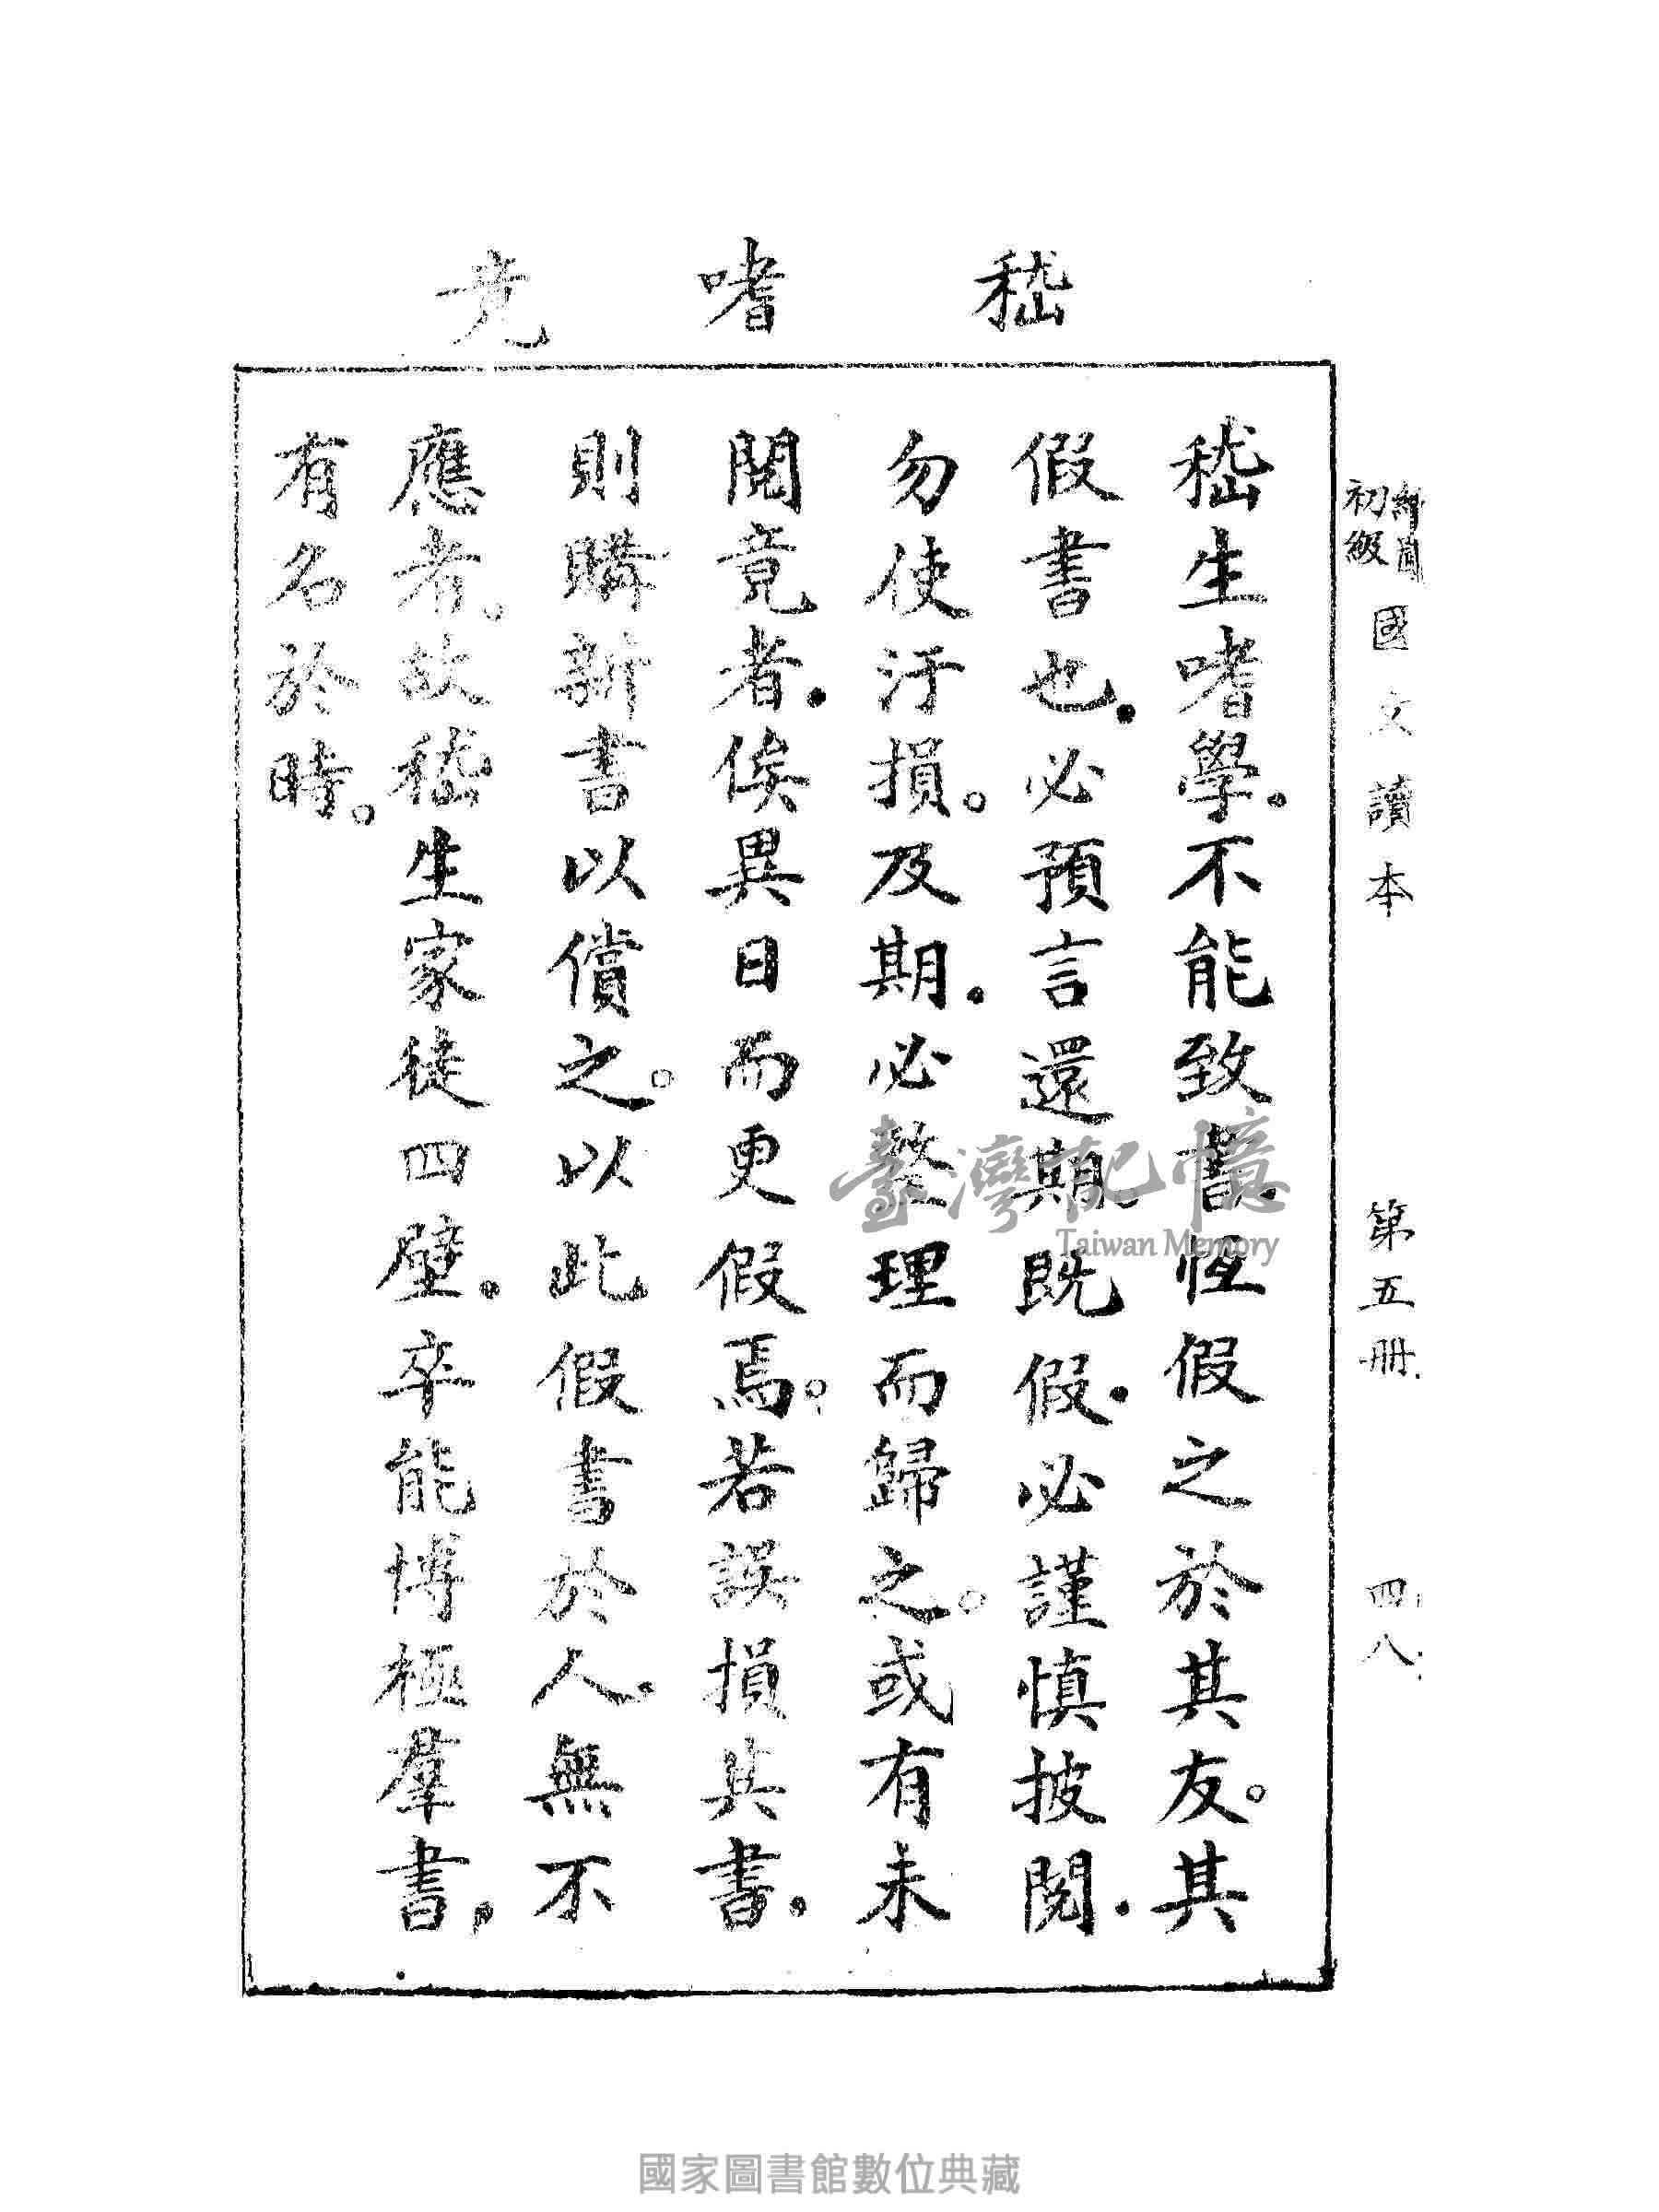 嵇　嗜　竟
繪圖初級國文讀本　第五册　四八
嵇生嗜學．不能致書．恆假之於其友。其
假書也．必預言還期。既假．必謹慎披閱．
勿使汙損。及期．必整理而歸之。或有未
閱竟者．俟異日而更假焉。若誤損其書．
則購新書以償之。以此假書於人．無不
應者。故嵇生家徒四壁．卒能博極羣書，
有名於時。
臺灣記憶
Taiwan Memory
國家圖書館數位典藏